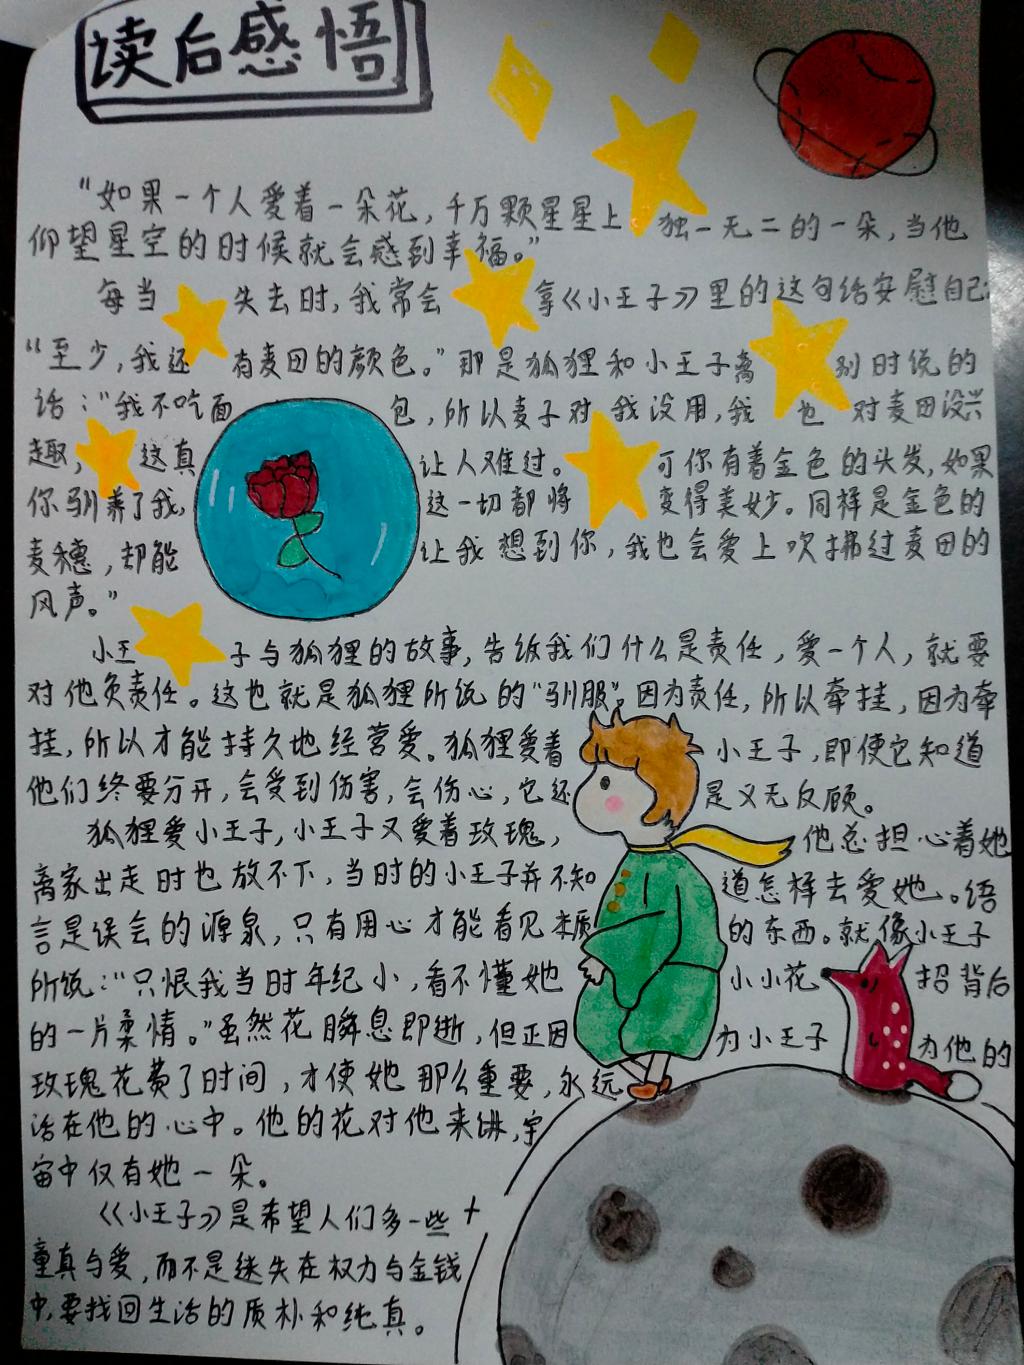 读后感悟
“如果一个人爱着一朵花，千万颗星星上独一无二的一朵，当他
仰望星空的时候就会感到幸福。”
每当失去时，我常会拿《小王子》里的这句话安慰自己：
“至少，我还有麦田的颜色。”那是狐狸和小王子离别时说的
话：“我不吃面包，所以麦子对我没用，我也对麦田没兴
趣，这真让人难过。可你有着金色的头发，如果
你驯养了我，这一切都将变得美妙。同样是金色的
麦穗，却能让我想到你，我也会爱上吹拂过麦田的
风声。”
小王子与狐狸的故事，告诉我们什么是责任，爱一个人，就要
对他负责任。这也就是狐狸所说的“驯服”。因为责任，所以牵挂，因为牵
挂，所以才能持久地经营爱。狐狸爱着小王子，即使它知道
他们终要分开，会受到伤害，会伤心，它还是义无反顾。
狐狸爱小王子，小王子又爱着玫瑰，他总担心着她
离家出走时也放不下，当时的小王子并不知道怎样去爱她。语
言是误会的源泉，只有用心才能看见本质的东西。就像小王子
所说：“只恨我当时年纪小，看不懂她小小花招背后
的一片柔情。”虽然花瞬息即逝，但正因为小王子为他的
玫瑰花费了时间，才使她那么重要，永远
活在他的心中。他的花对他来讲，宇
宙中仅有她一朵。
《小王子》是希望人们多一些
童真与爱，而不是迷失在权力与金钱
中，要找回生活的质朴和纯真。